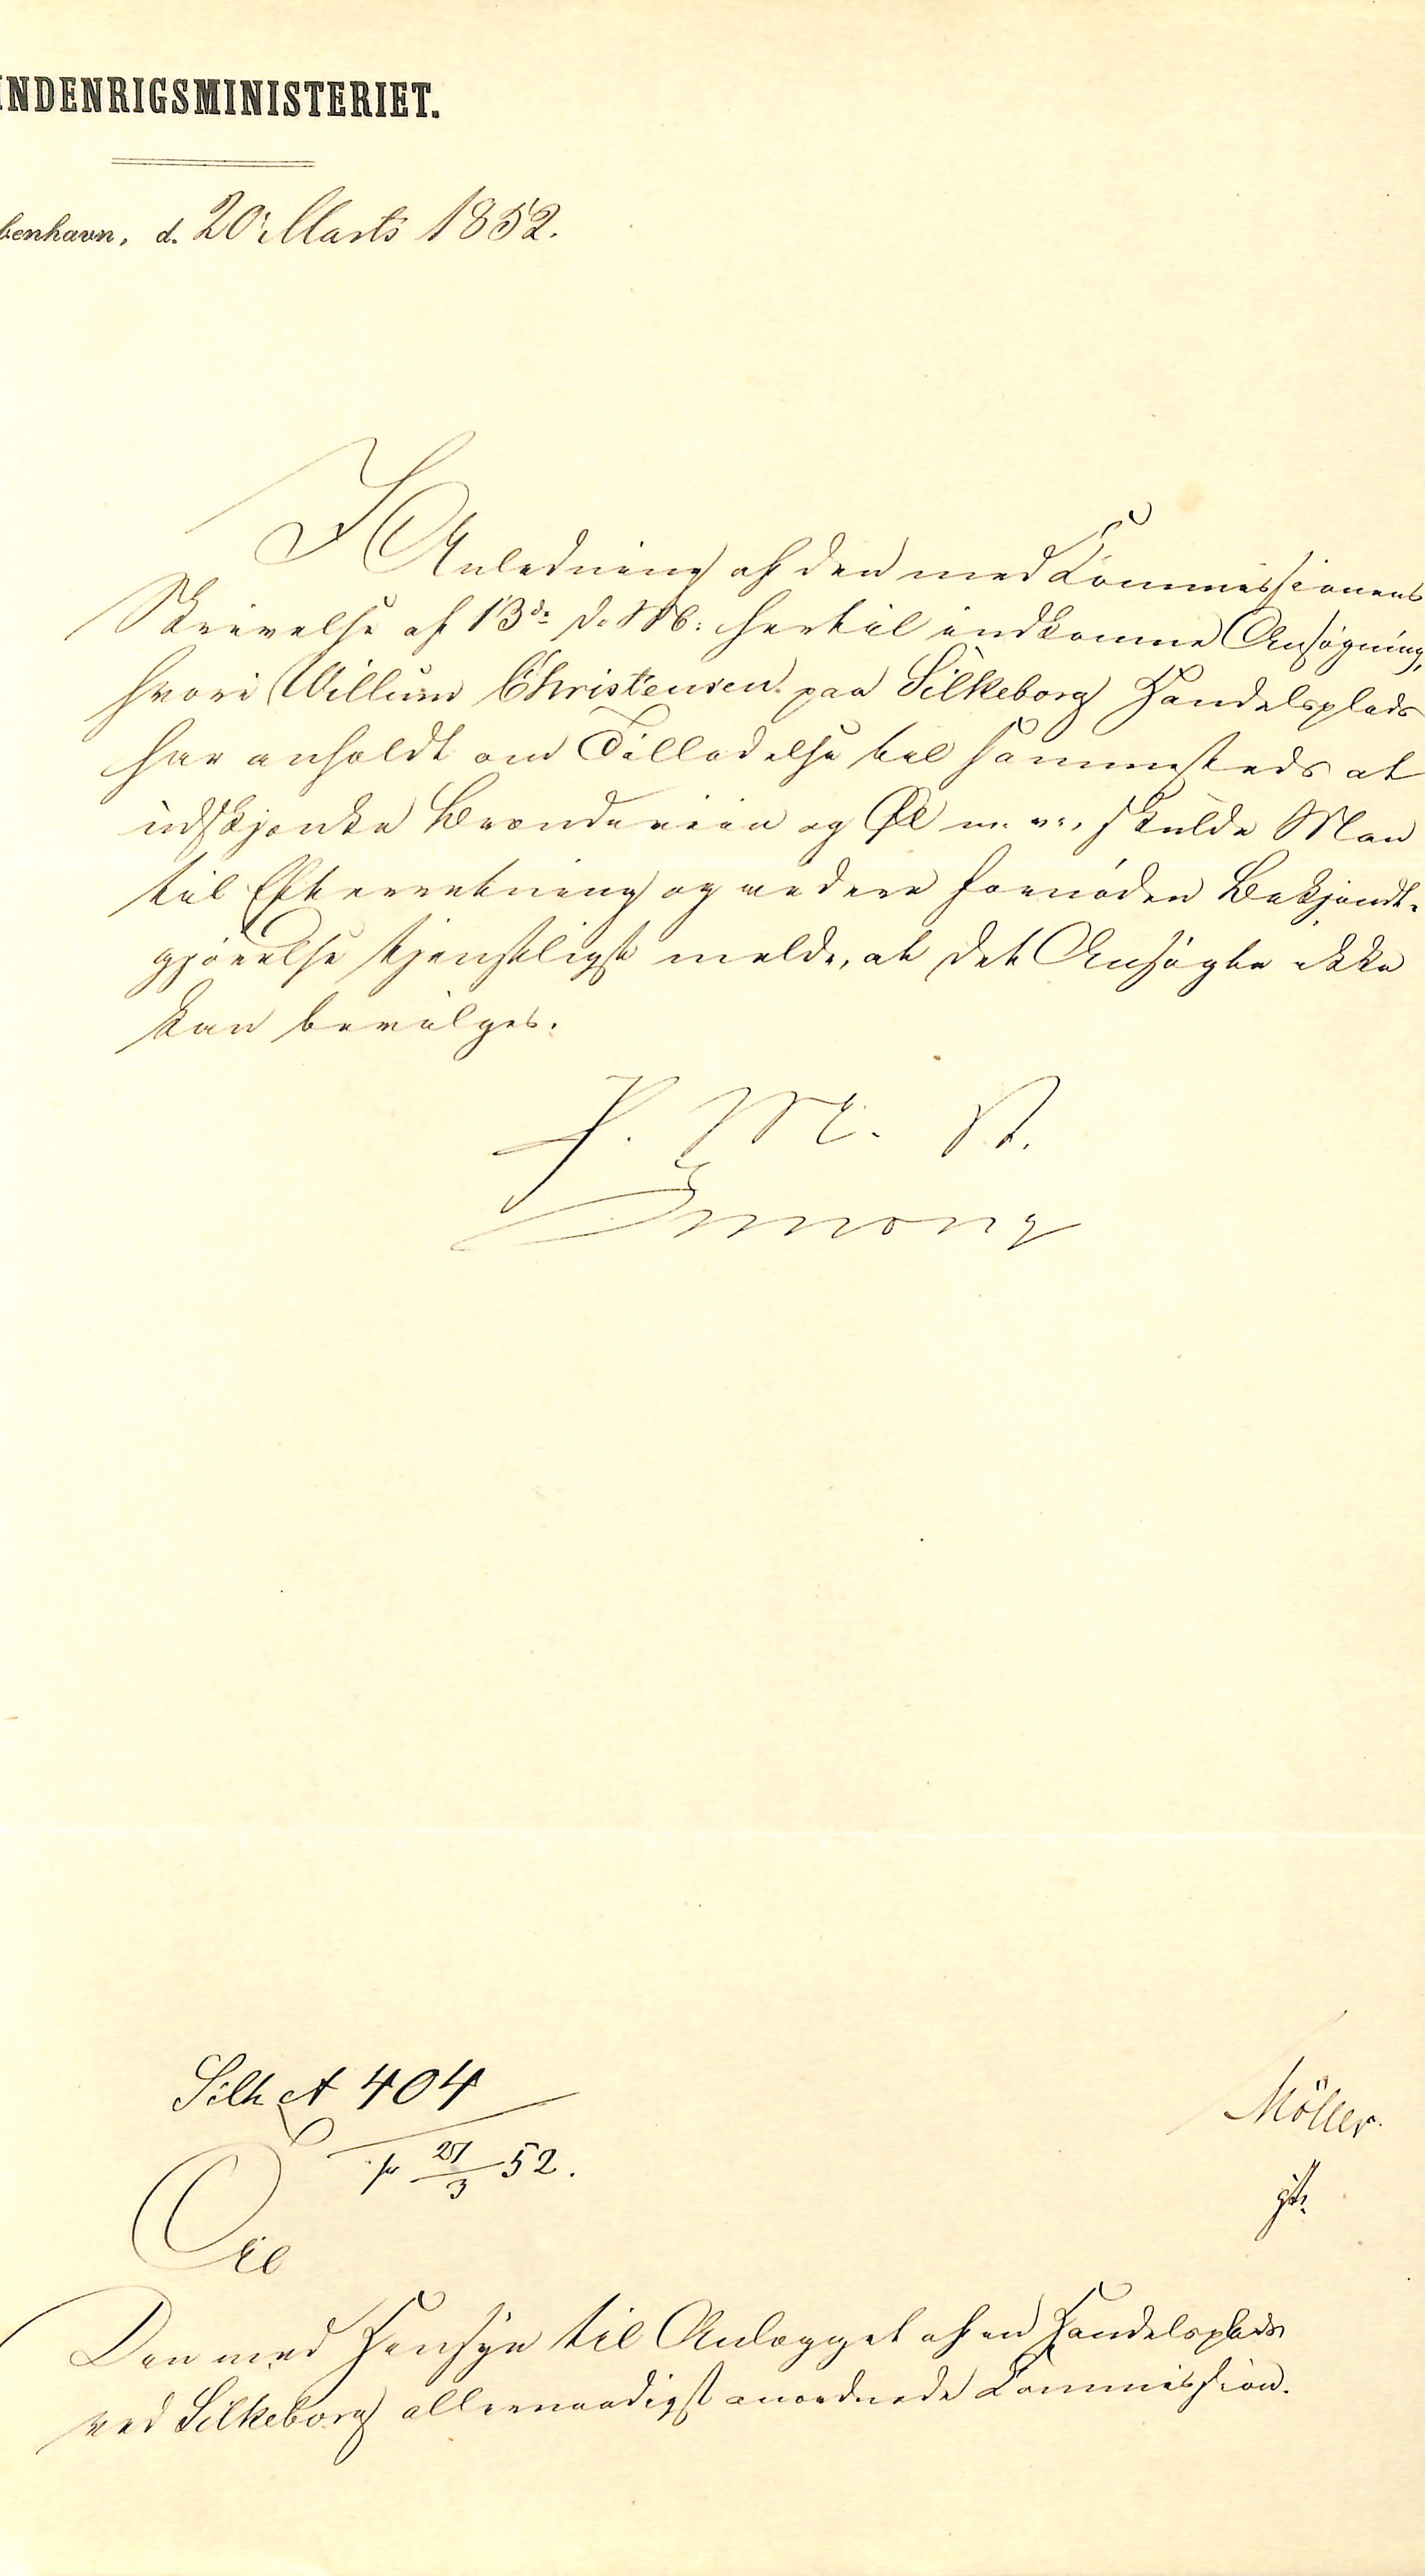 INDENRIGSMINISTERIET.
benhavn, d. 20' Marts 1852.
I Anledning af den med Kommissionens
Skrivelse af 13de d. M: hertil indkomne Ansøgning,
hvori Willum Christensen paa Silkeborg Handelsplads
har anholdt om Tilladelse til sammesteds at
udskjænke Brændeviin og Øl m. v., skulde Man
til Efterretning og videre fornøden Bekjendt-
gjørelse tjenstligst melde, at det Ansøgte ikke
kan bevilges.
P. M. V.
Simony
Silk A 404
pr 25/3 52.
Møller.
Til
Den med Hensyn til Anlægget af en Handelsplads
ved Silkeborg allernaadigst anordnede Kommission.